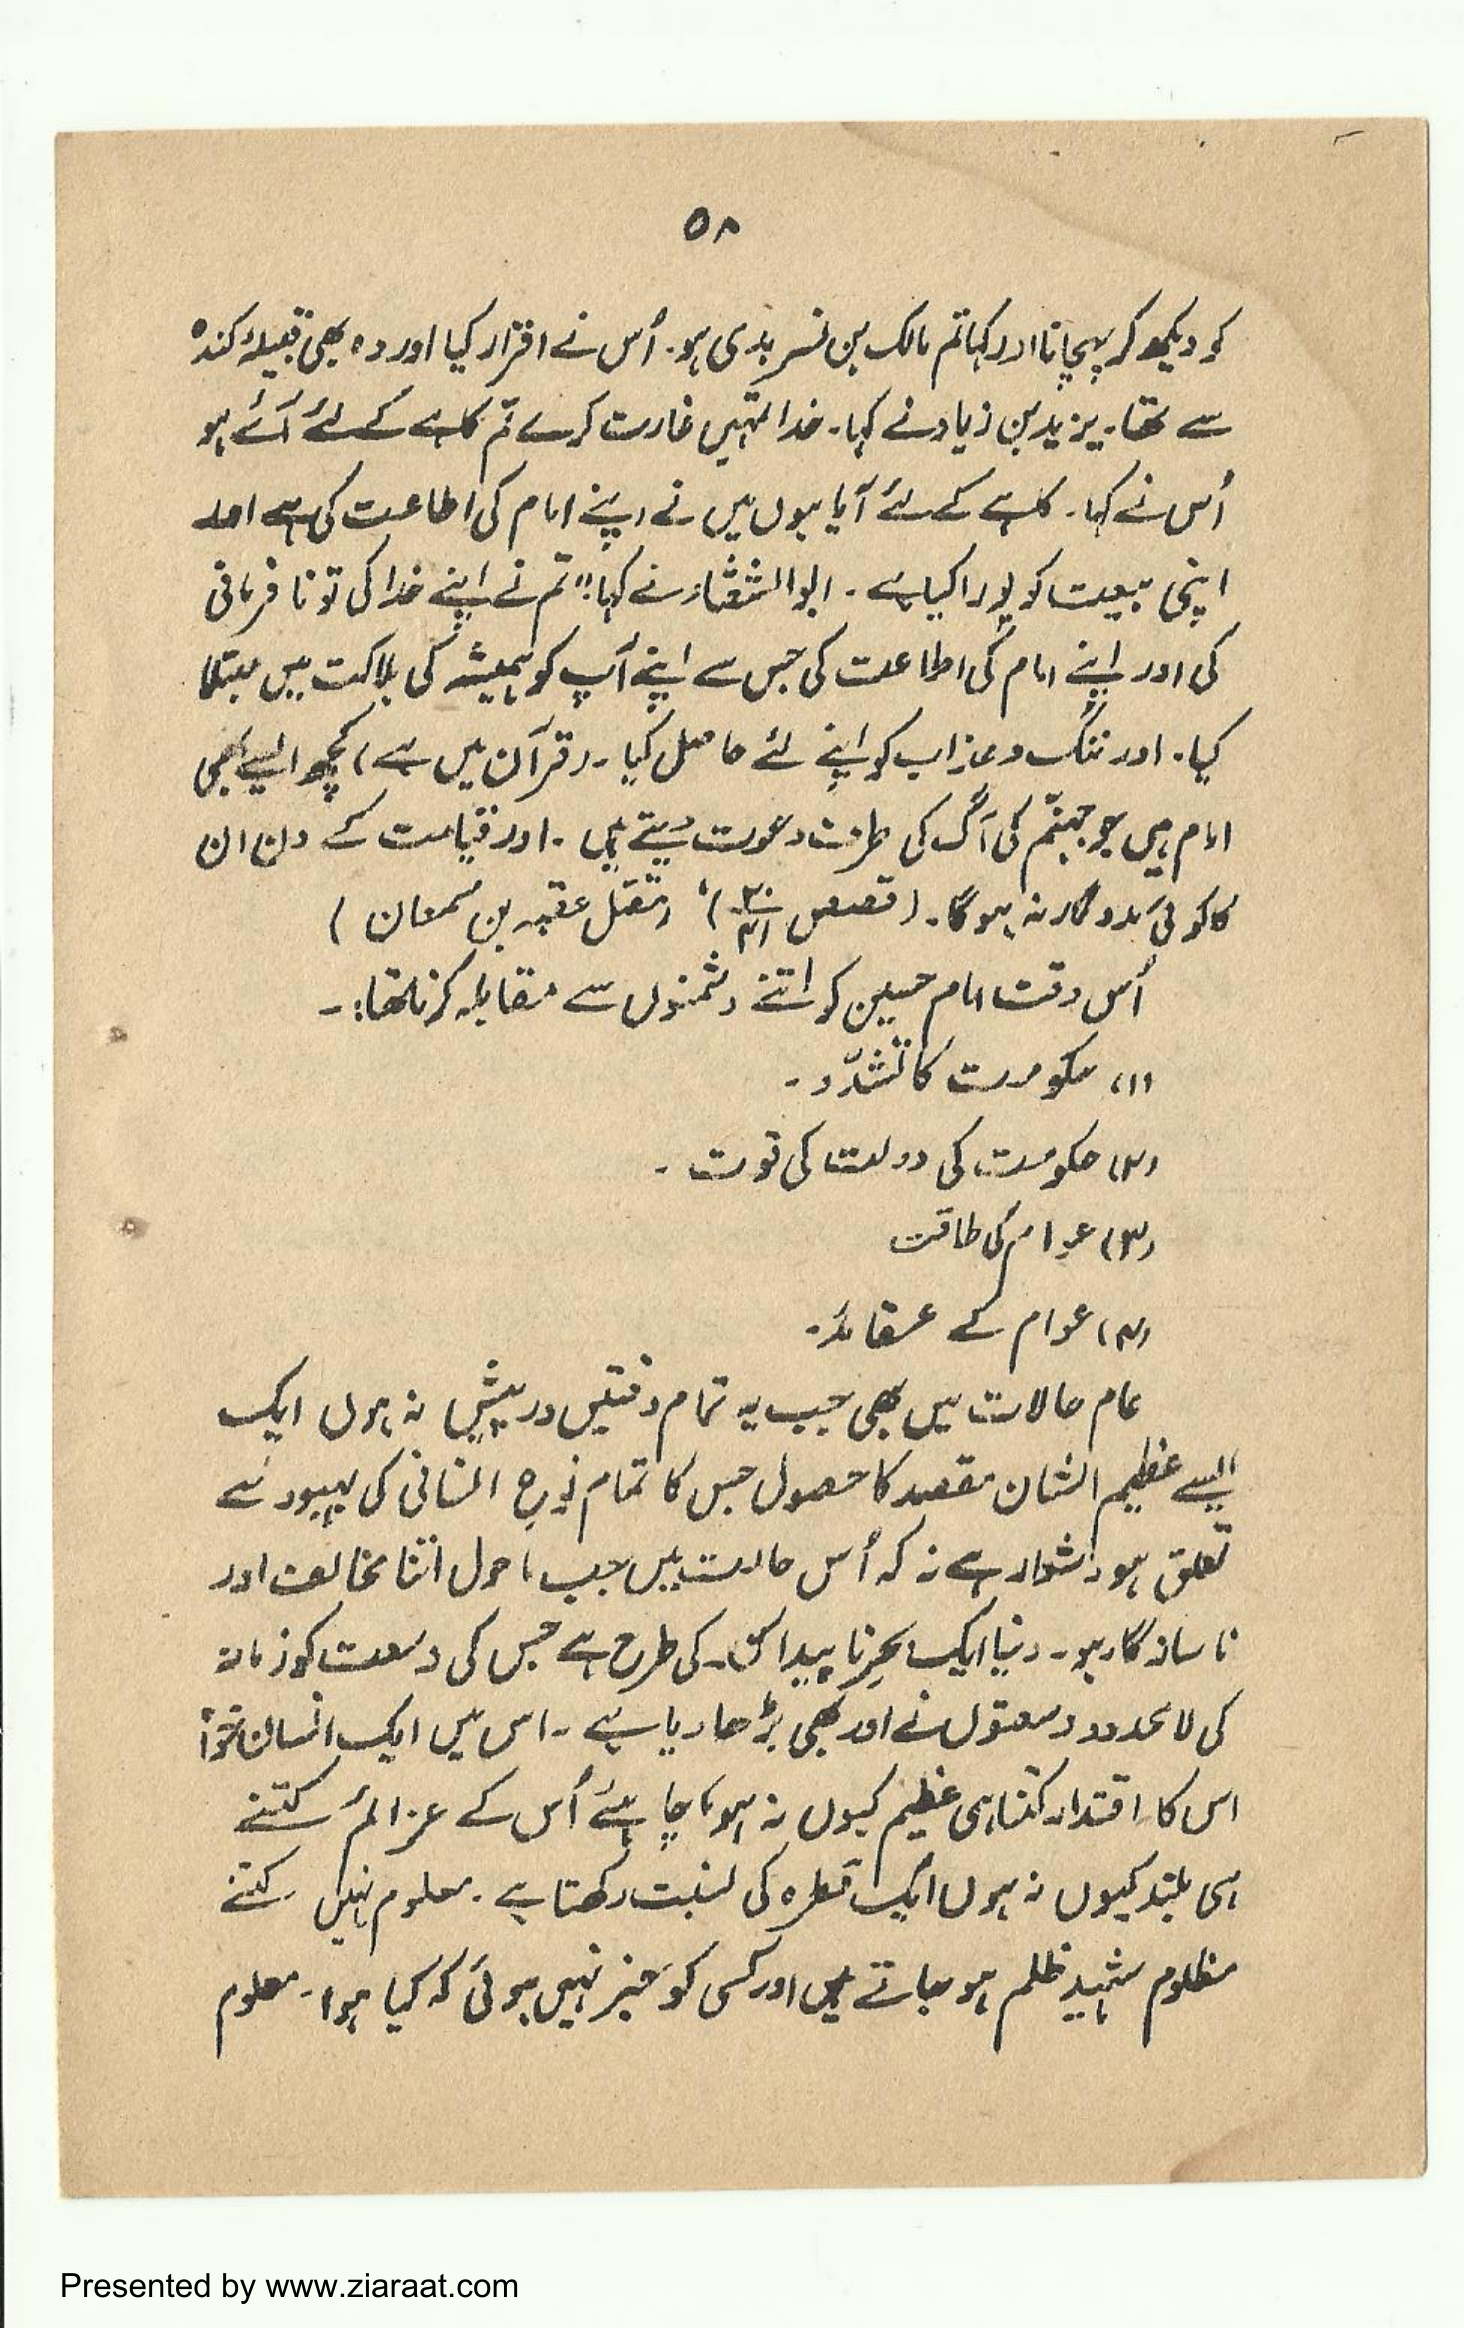 ۵۸
کو دیکھ کر پہچانا اور کہا تم مالک بن نسر بدی ہو۔ اُس نے اقرار کیا اور وہ بھی قبیلۂ کندہ
سے تھا۔ یزید بن زیاد نے کہا۔ خدا تمہیں غارت کرے تم کاہے کے لئے آئے ہو
اُس نے کہا۔ کاہے کے لئے آیا ہوں میں نے اپنے امام کی اطاعت کی ہے اور
اپنی بیعت کو پورا کیا ہے۔ ابو الشعثاء نے کہا "تم نے اپنے خدا کی تو نافرمانی
کی اور اپنے امام کی اطاعت کی جس سے اپنے آپ کو ہمیشہ کی ہلاکت میں مبتلا
کیا۔ اور ننگ و عذاب کو اپنے لئے حاصل کیا۔ (قرآن میں ہے) کچھ ایسے بھی
امام ہیں جو جہنّم کی آگ کی طرف دعوت دیتے ہیں۔ اور قیامت کے دن ان
کا کوئی مددگار نہ ہوگا۔ (قصص ۲۰/۴۱)' (مقتل عقبہ بن سمعان)
اُس وقت امام حسین کو اتنے دشمنوں سے مقابلہ کرنا تھا:۔
(۱) حکومت کا تشدّد۔
(۲) حکومت کی دولت کی قوت۔
(۳) عوام کی طاقت
(۴) عوام کے عقائد۔
عام حالات میں بھی جب یہ تمام دقتیں درپیش نہ ہوں ایک
ایسے عظیم الشان مقصد کا حصول جس کا تمام نوع انسانی کی بہبود سے
تعلق ہو دشوار ہے نہ کہ اُس حالت میں جب ماحول اتنا مخالف اور
ناسازگار ہو۔ دنیا ایک بحرِ ناپیدا کی طرح ہے جس کی وسعت کو زمانہ
کی لامحدود وسعتوں نے اور بھی بڑھا دیا ہے۔ اس میں ایک انسان خواہ
اس کا اقتدار کتنا ہی عظیم کیوں نہ ہو، چاہئے اُس کے عزائم کتنے
ہی بلند کیوں نہ ہوں ایک قطرہ کی نسبت رکھتا ہے۔ معلوم نہیں کتنے
مظلوم شہید ظلم ہو جاتے ہیں اور کسی کو خبر نہیں ہوئی کہ کیا ہوا۔ معلوم
Presented by www.ziaraat.com